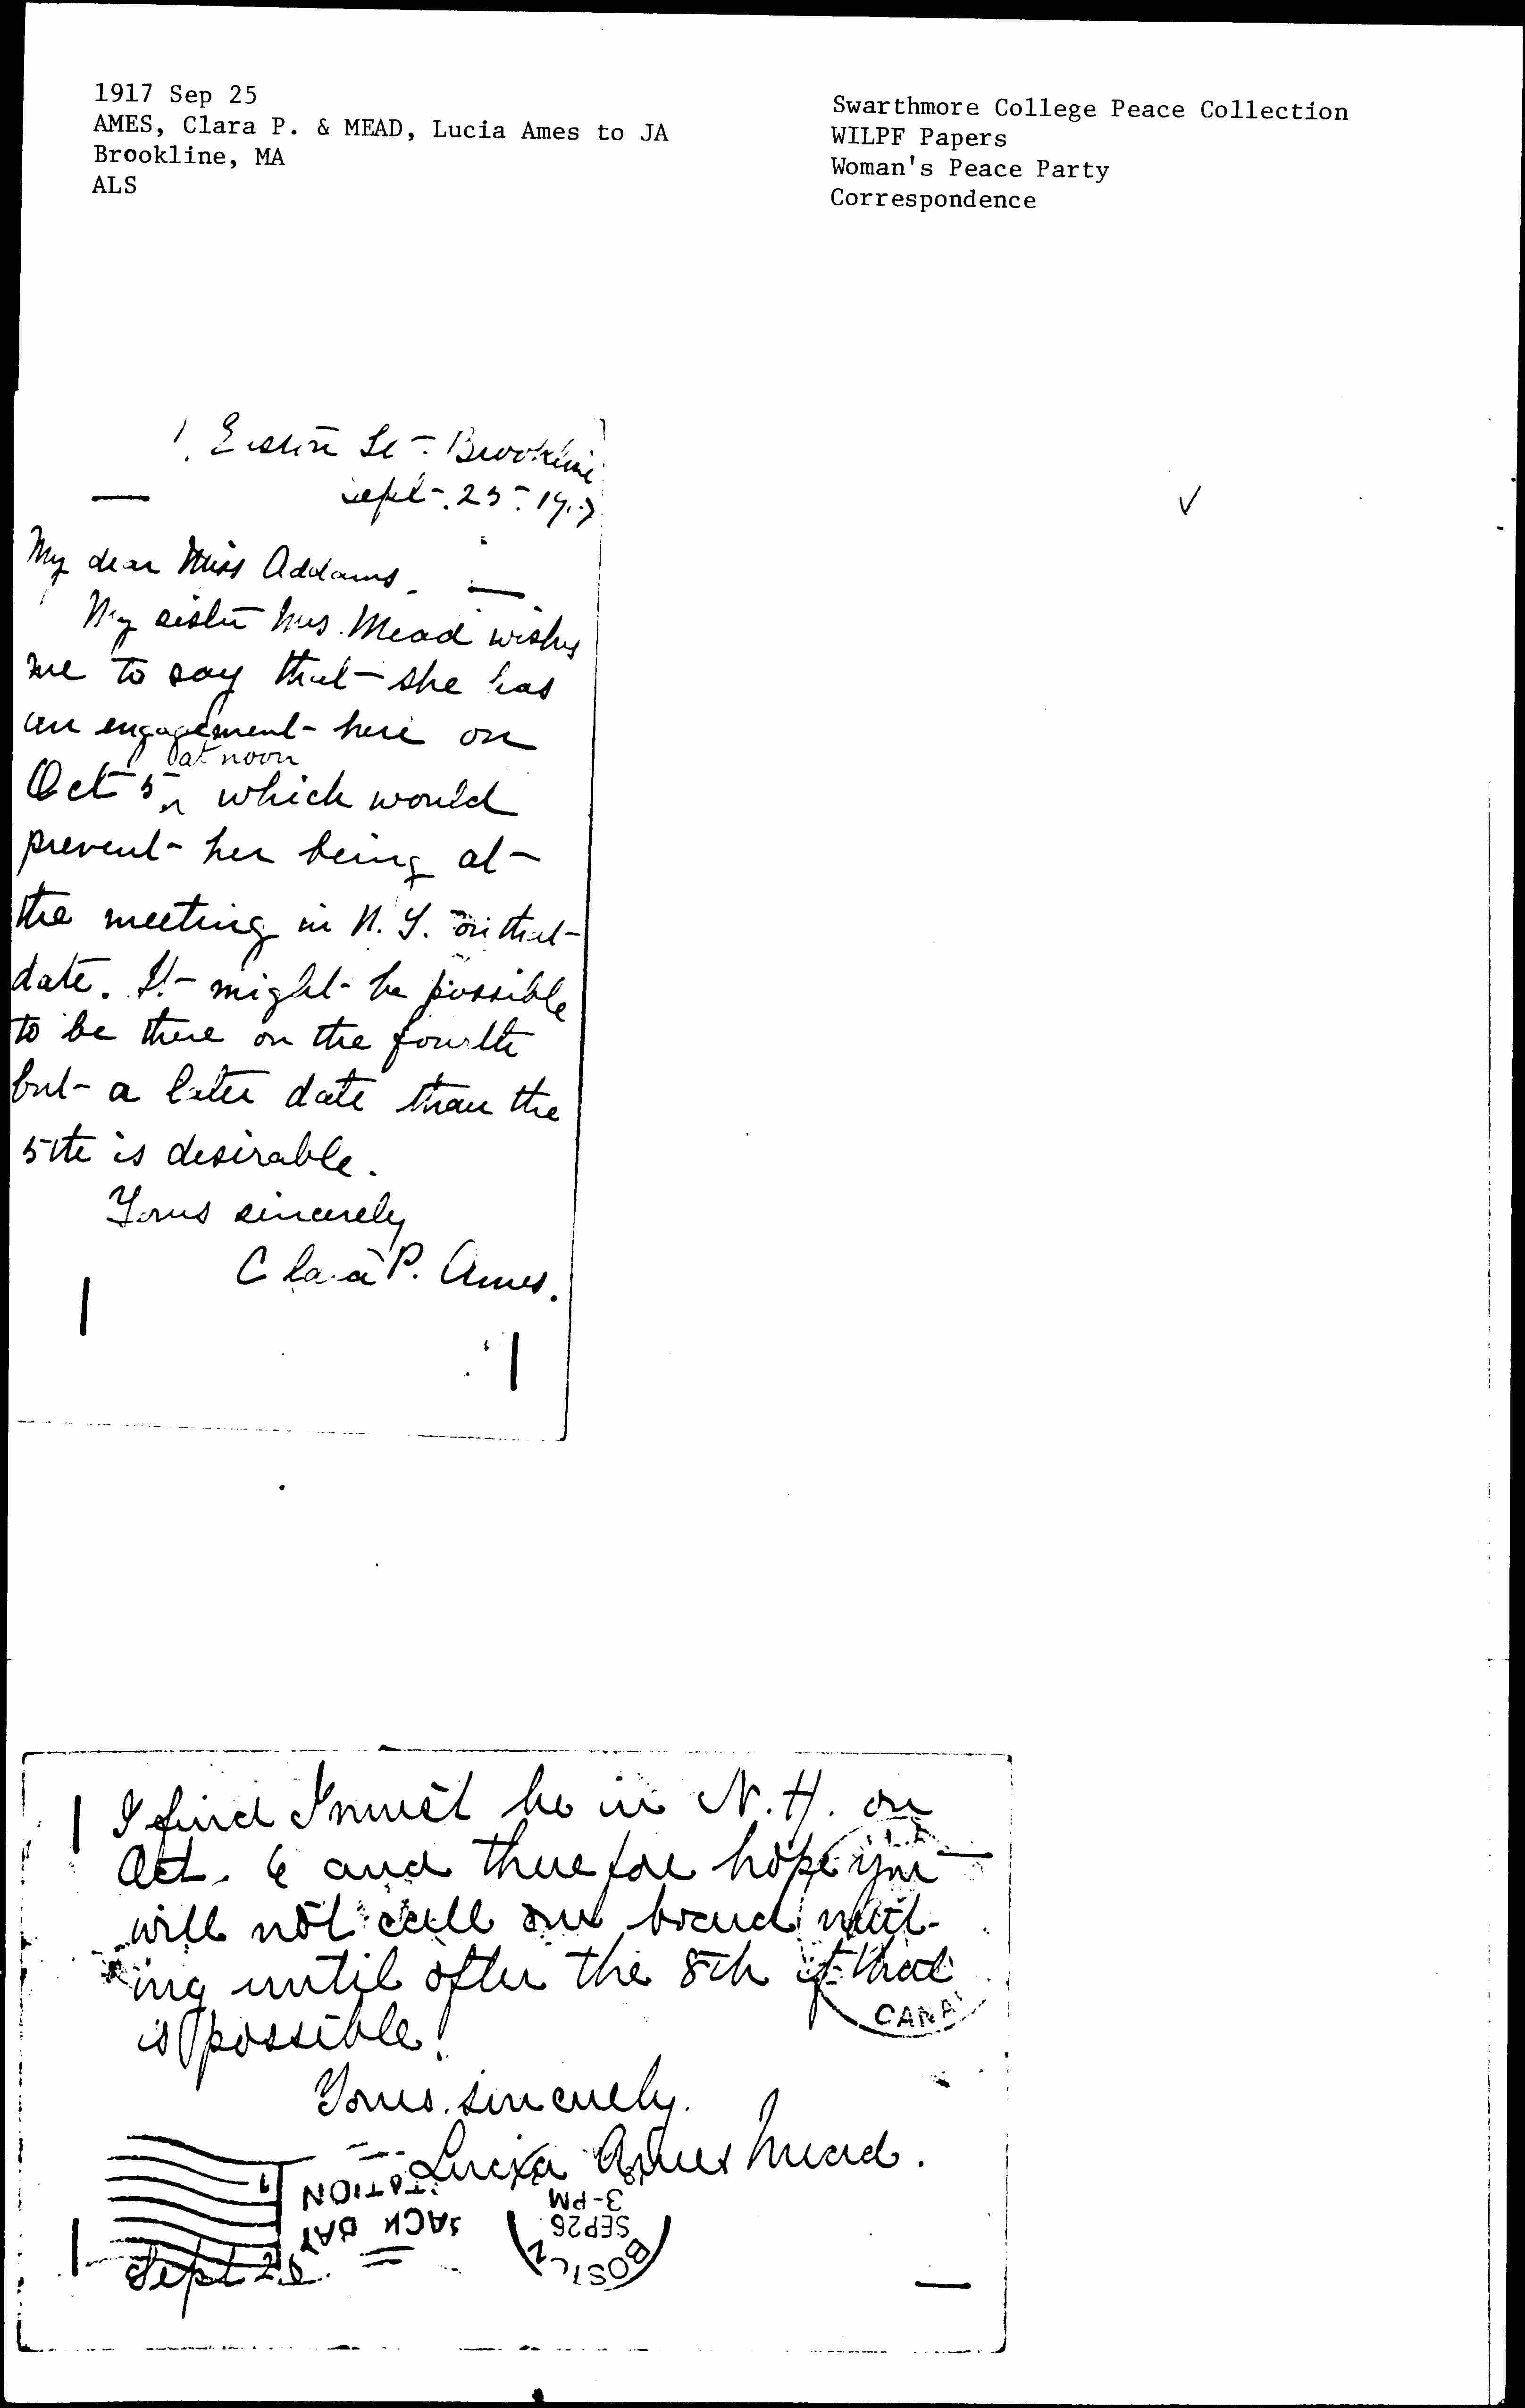 1917 Sep 25
AMES, Clara P. & MEAD, Lucia Ames to JA
Brookline, MA
ALS
Swarthmore College Peace Collection
WILPF Papers
Woman's Peace Party
Correspondence
1. St. Brookline
Sept. 25. 1917
My dear Miss Addams.
My sister Mrs. Mead wishes
me to say that she has
an engagement here on
at noon
Oct 5 ^ which would
prevent her being at
the meeting in N. Y. on that
date. It might be possible
to be there on the fourth
but a later date than the
5th is desirable.
Yours sincerely
Clara P. Ames.
I find I must be in N. H. on
Oct. 6 and therefore hope you
will not call our board meet-
ing until after the 8th if that
is possible.
Yours sincerely.
Lucia Ames Mead.
BOSTON
SEP 26
3-PM
BACK BAY
STATION
1
Sept 26.
CANAL